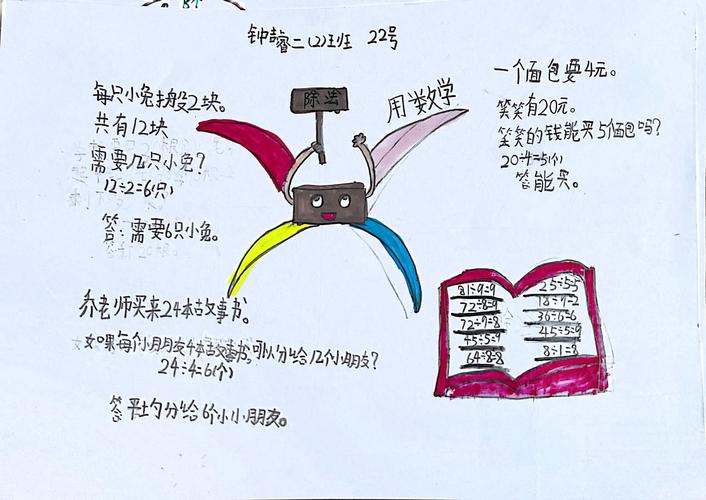 钟睿二(2)班 22号
除法
用数学
每只小兔搬2块。
共有12块
需要几只小兔?
12÷2=6(只)
答:需要6只小兔。
一个面包要4元。
笑笑有20元。
笑笑的钱能买5个面包吗?
20÷4=5(个)
答能买。
乔老师买来24本故事书。
如果每个小朋友4本故事书,可以分给几个小朋友?
24÷4=6(个)
答平均分给6个小小朋友。
81÷9=9
72÷8=9
72÷9=8
45÷5=9
64÷8=8
25÷5=5
18÷9=2
36÷6=6
45÷5=9
8÷1=8